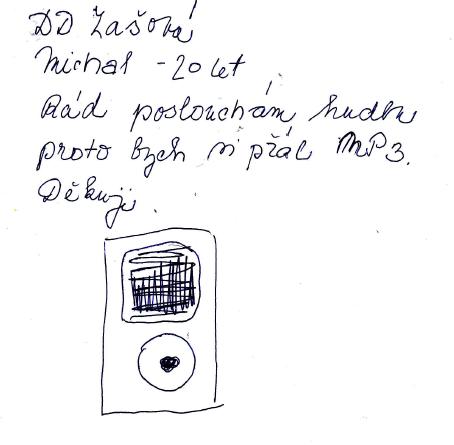 DD Zašová
Michal - 20 let
Rád poslouchám hudbu
proto bych si přál MP3.
Děkuji.